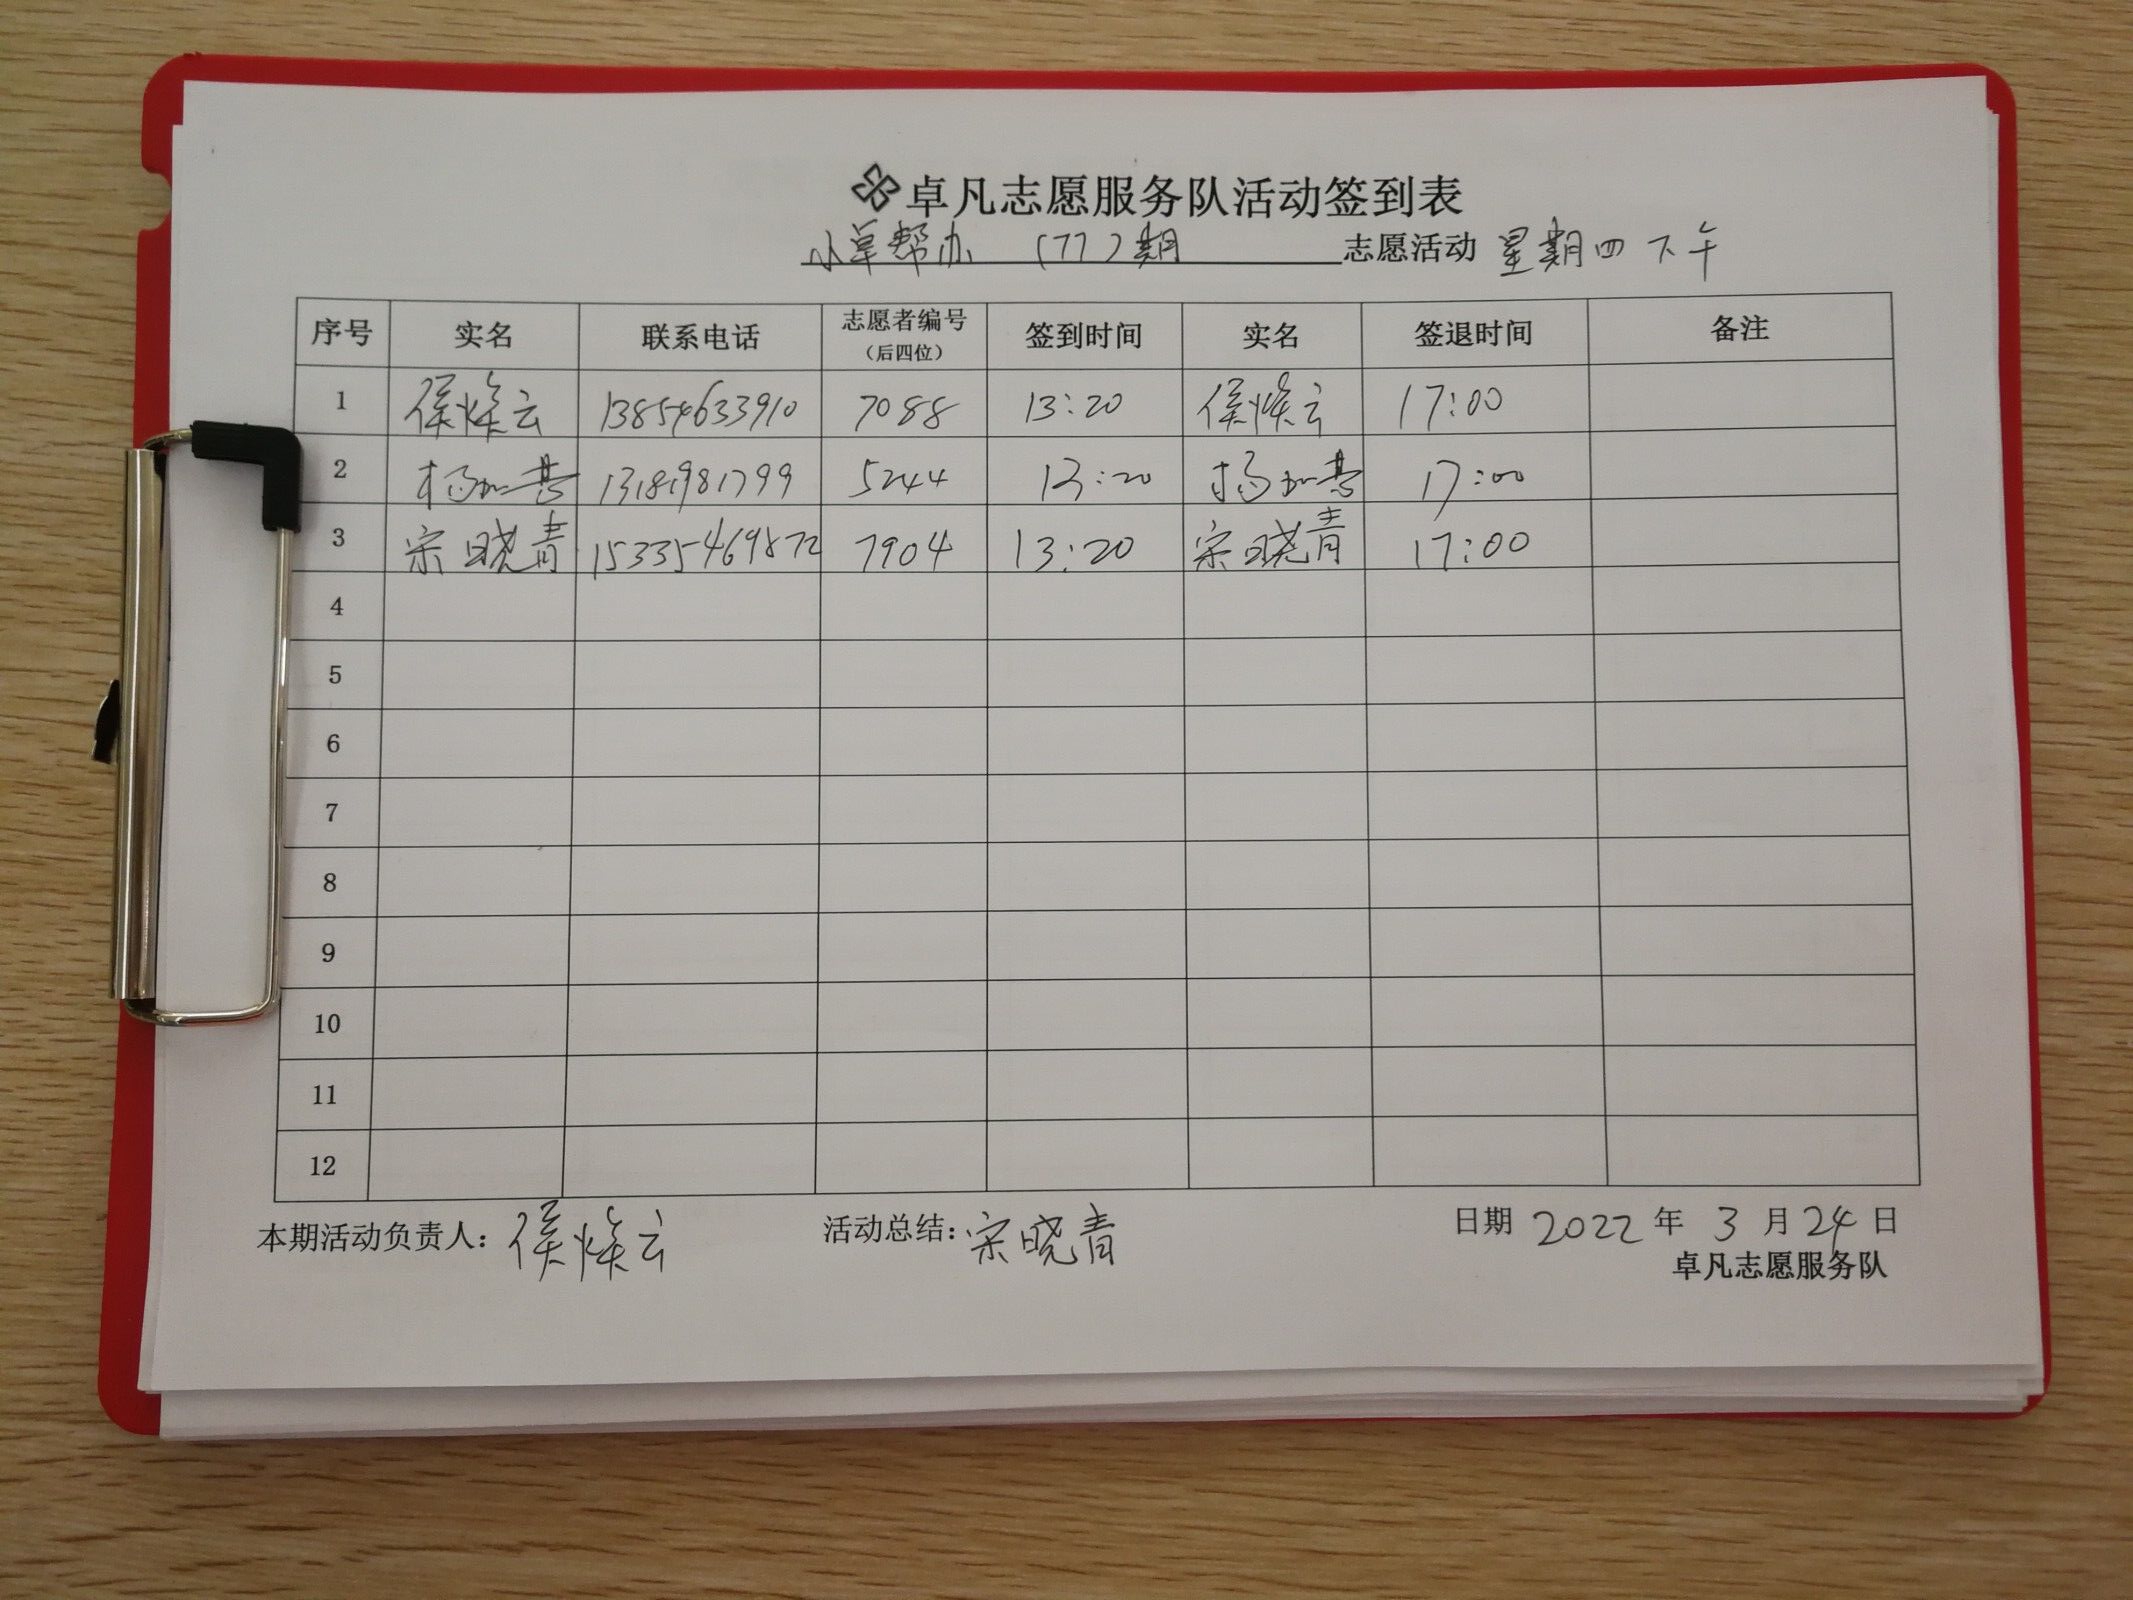 卓凡志愿服务队活动签到表
小草帮办 (77)期 志愿活动 星期四下午
序号 实名 联系电话 志愿者编号(后四位) 签到时间 实名 签退时间 备注
1 侯焕云 13854633910 7088 13:20 侯焕云 17:00
2 杨 13181981799 5244 13:20 杨 17:00
3 宋晓青 15335469872 7904 13:20 宋晓青 17:00
4
5
6
7
8
9
10
11
12
本期活动负责人：侯焕云 活动总结：宋晓青 日期 2022 年 3 月 24 日
卓凡志愿服务队